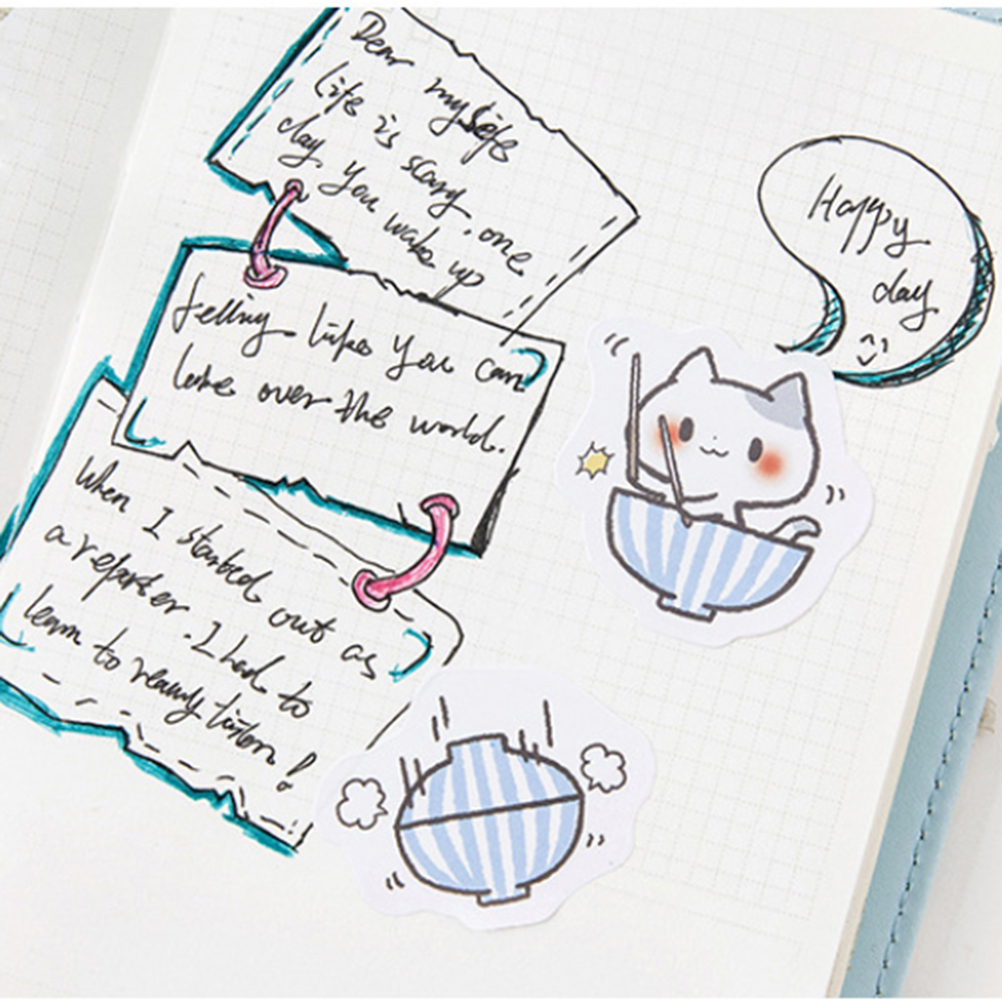 Dear myself
life is scary. one
day you wake up
felling like you can
take over the world.
When I started out as
a reporter. I had to
learn to really listen!
Happy
day